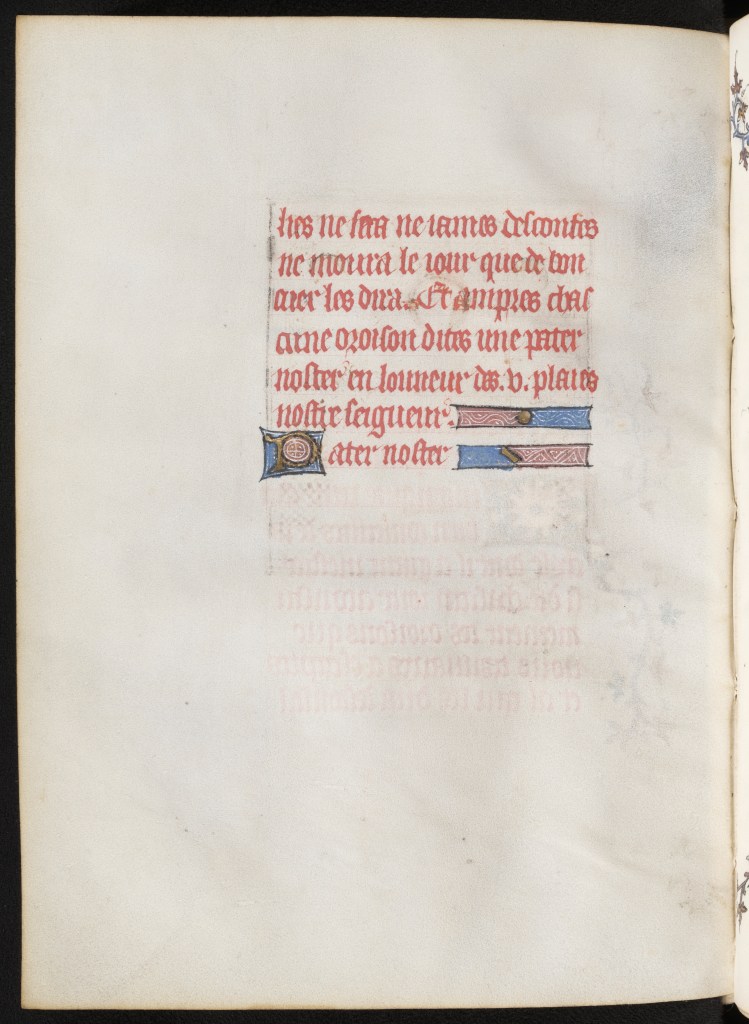 hes ne sera ne iames desconfes
ne moura le iour que de bon
cuer les dira. Et ampres chas
cune oroison dites une pater
noster en lonneur des .v. plaies
nostre seigneur.
Pater noster